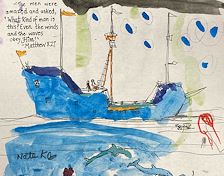 "The men were
amazed and asked,
"What kind of man is
this? Even the winds
and the waves
obey Him!"
~Matthew 8:27